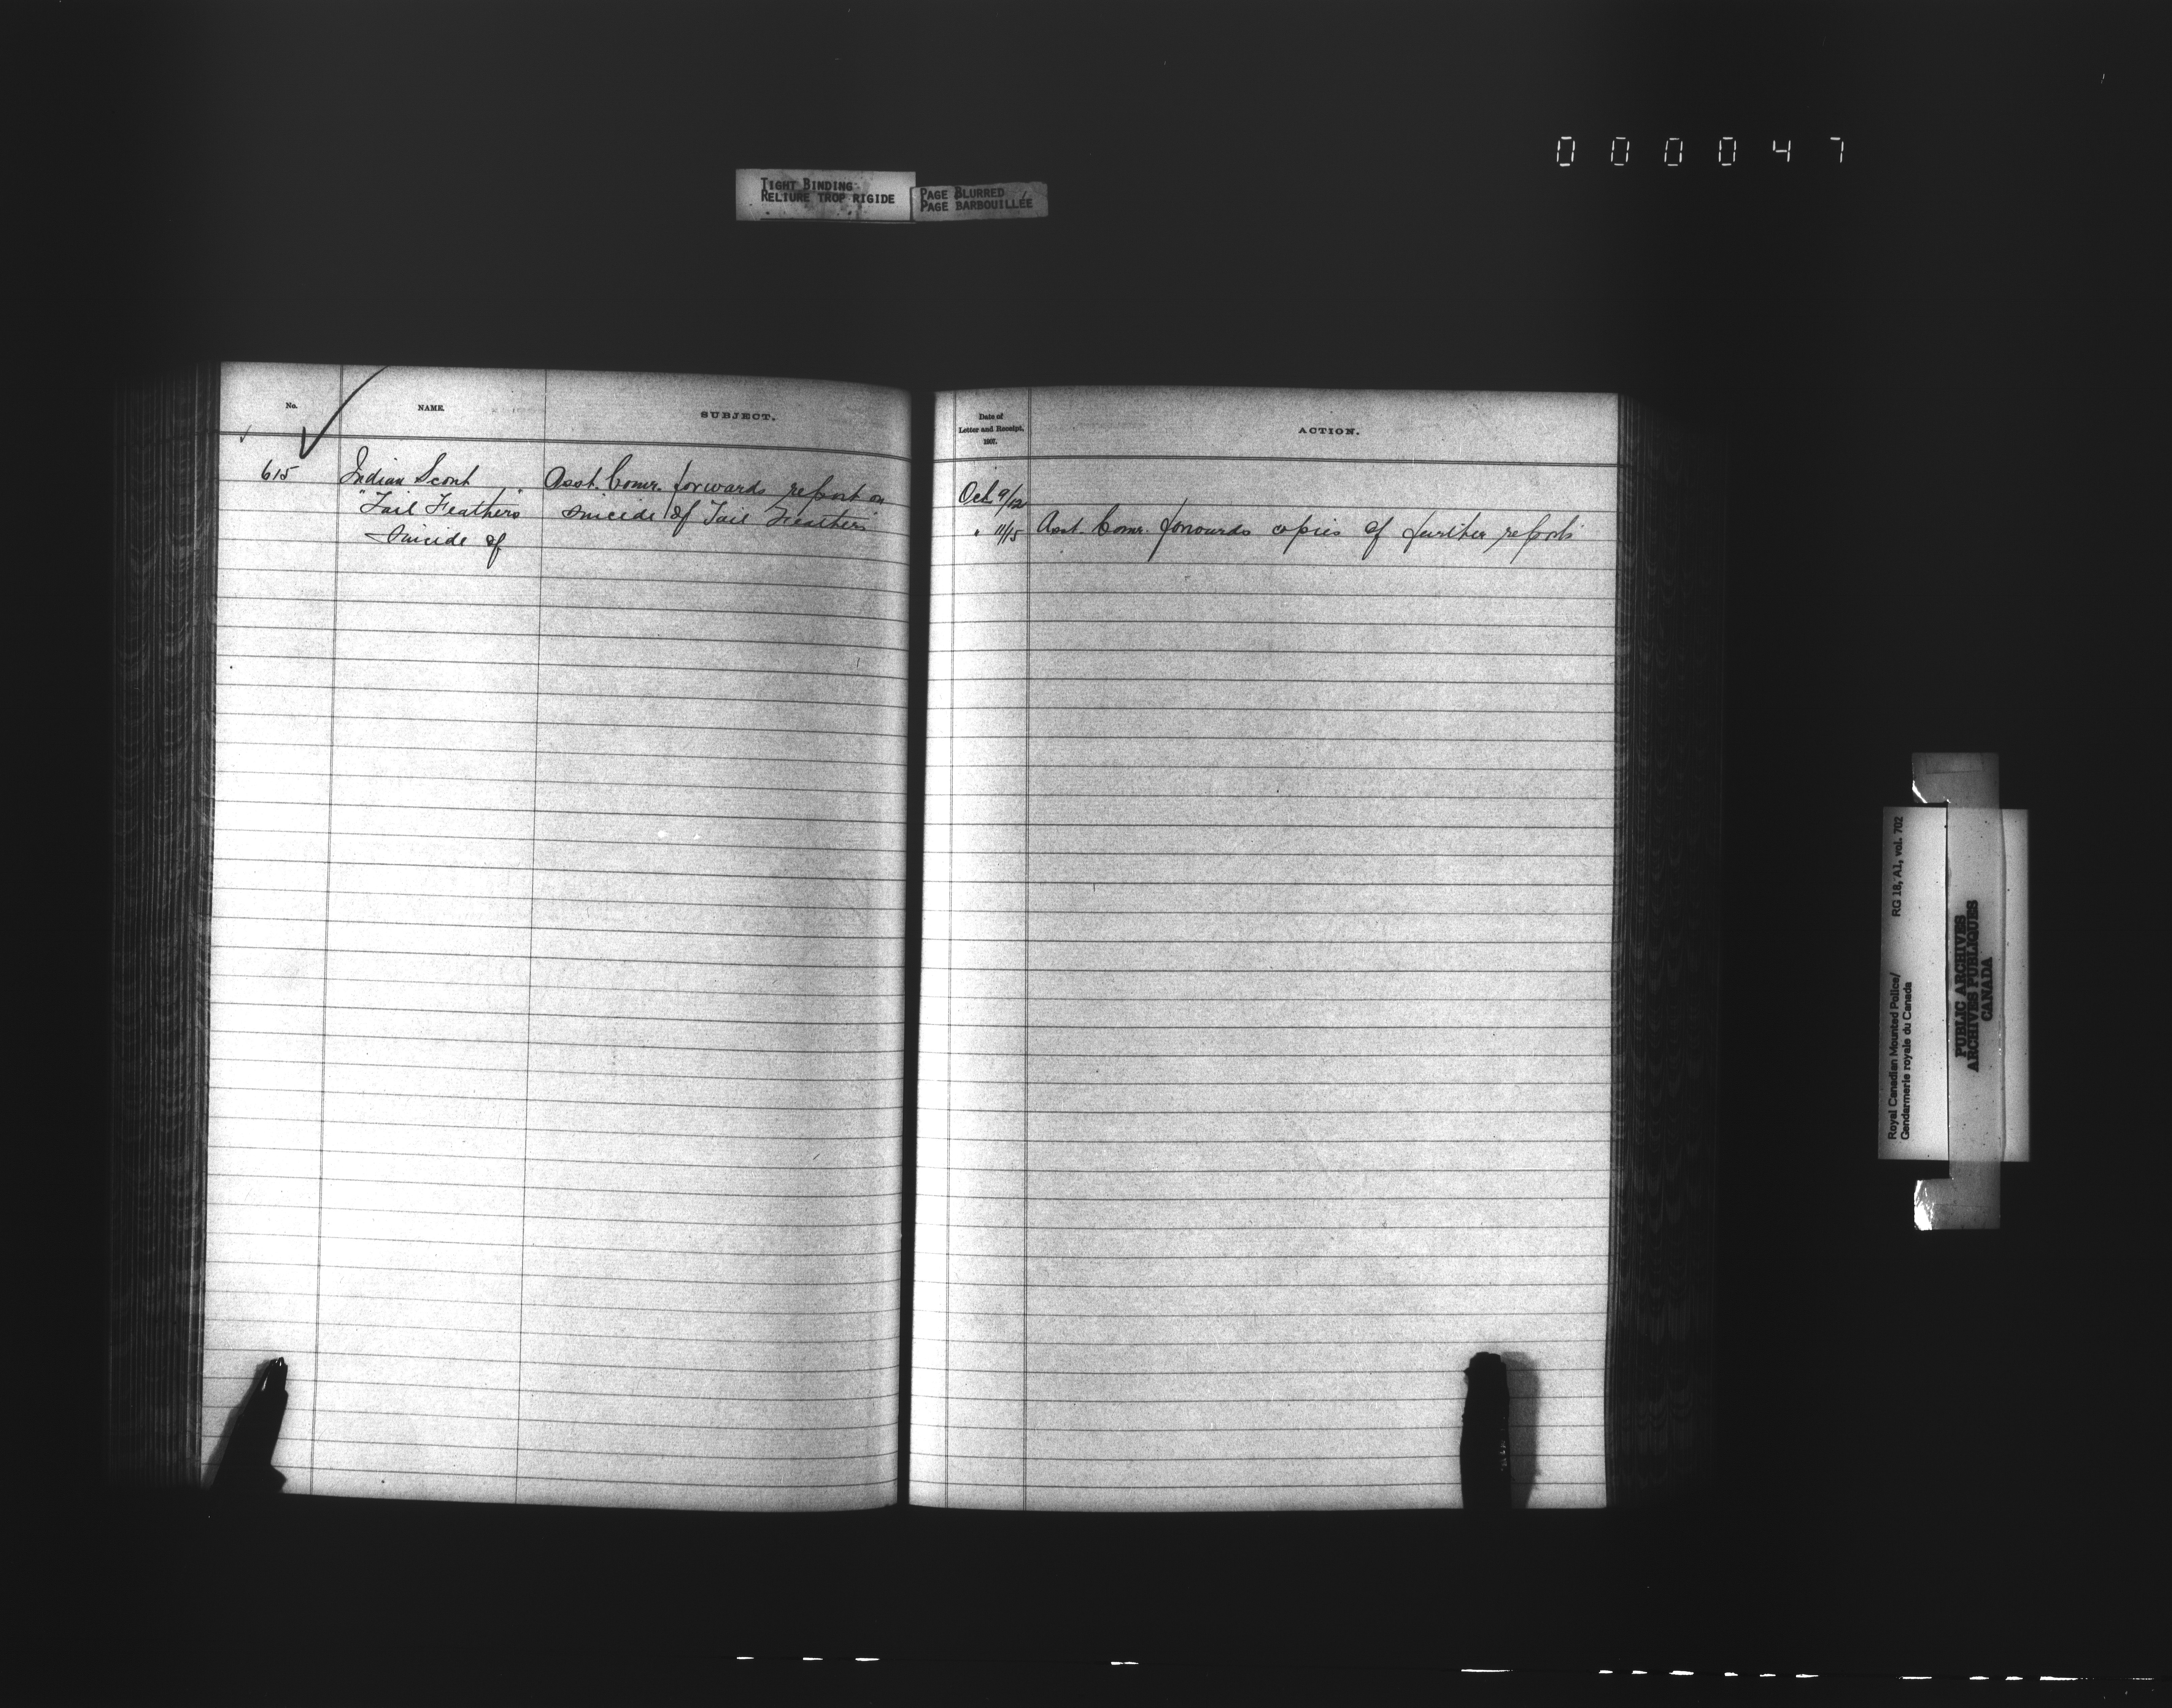 0 0 0 0 4 7
TIGHT BINDING
RELIURE TROP RIGIDE
PAGE BLURRED
PAGE BARBOUILLÉE
No.
NAME.
SUBJECT.
615
Indian Scout
"Tail Feathers"
Suicide of
Asst. Comr. forwards report on
suicide of "Tail Feathers"
Date of
Letter and Receipt,
1907.
ACTION.
Oct. 9/12
" 11/15 Asst. Comr. forwards copies of further reports
Royal Canadian Mounted Police/
Gendarmerie royale du Canada
RG 18, A1, vol. 702
PUBLIC ARCHIVES
ARCHIVES PUBLIQUES
CANADA